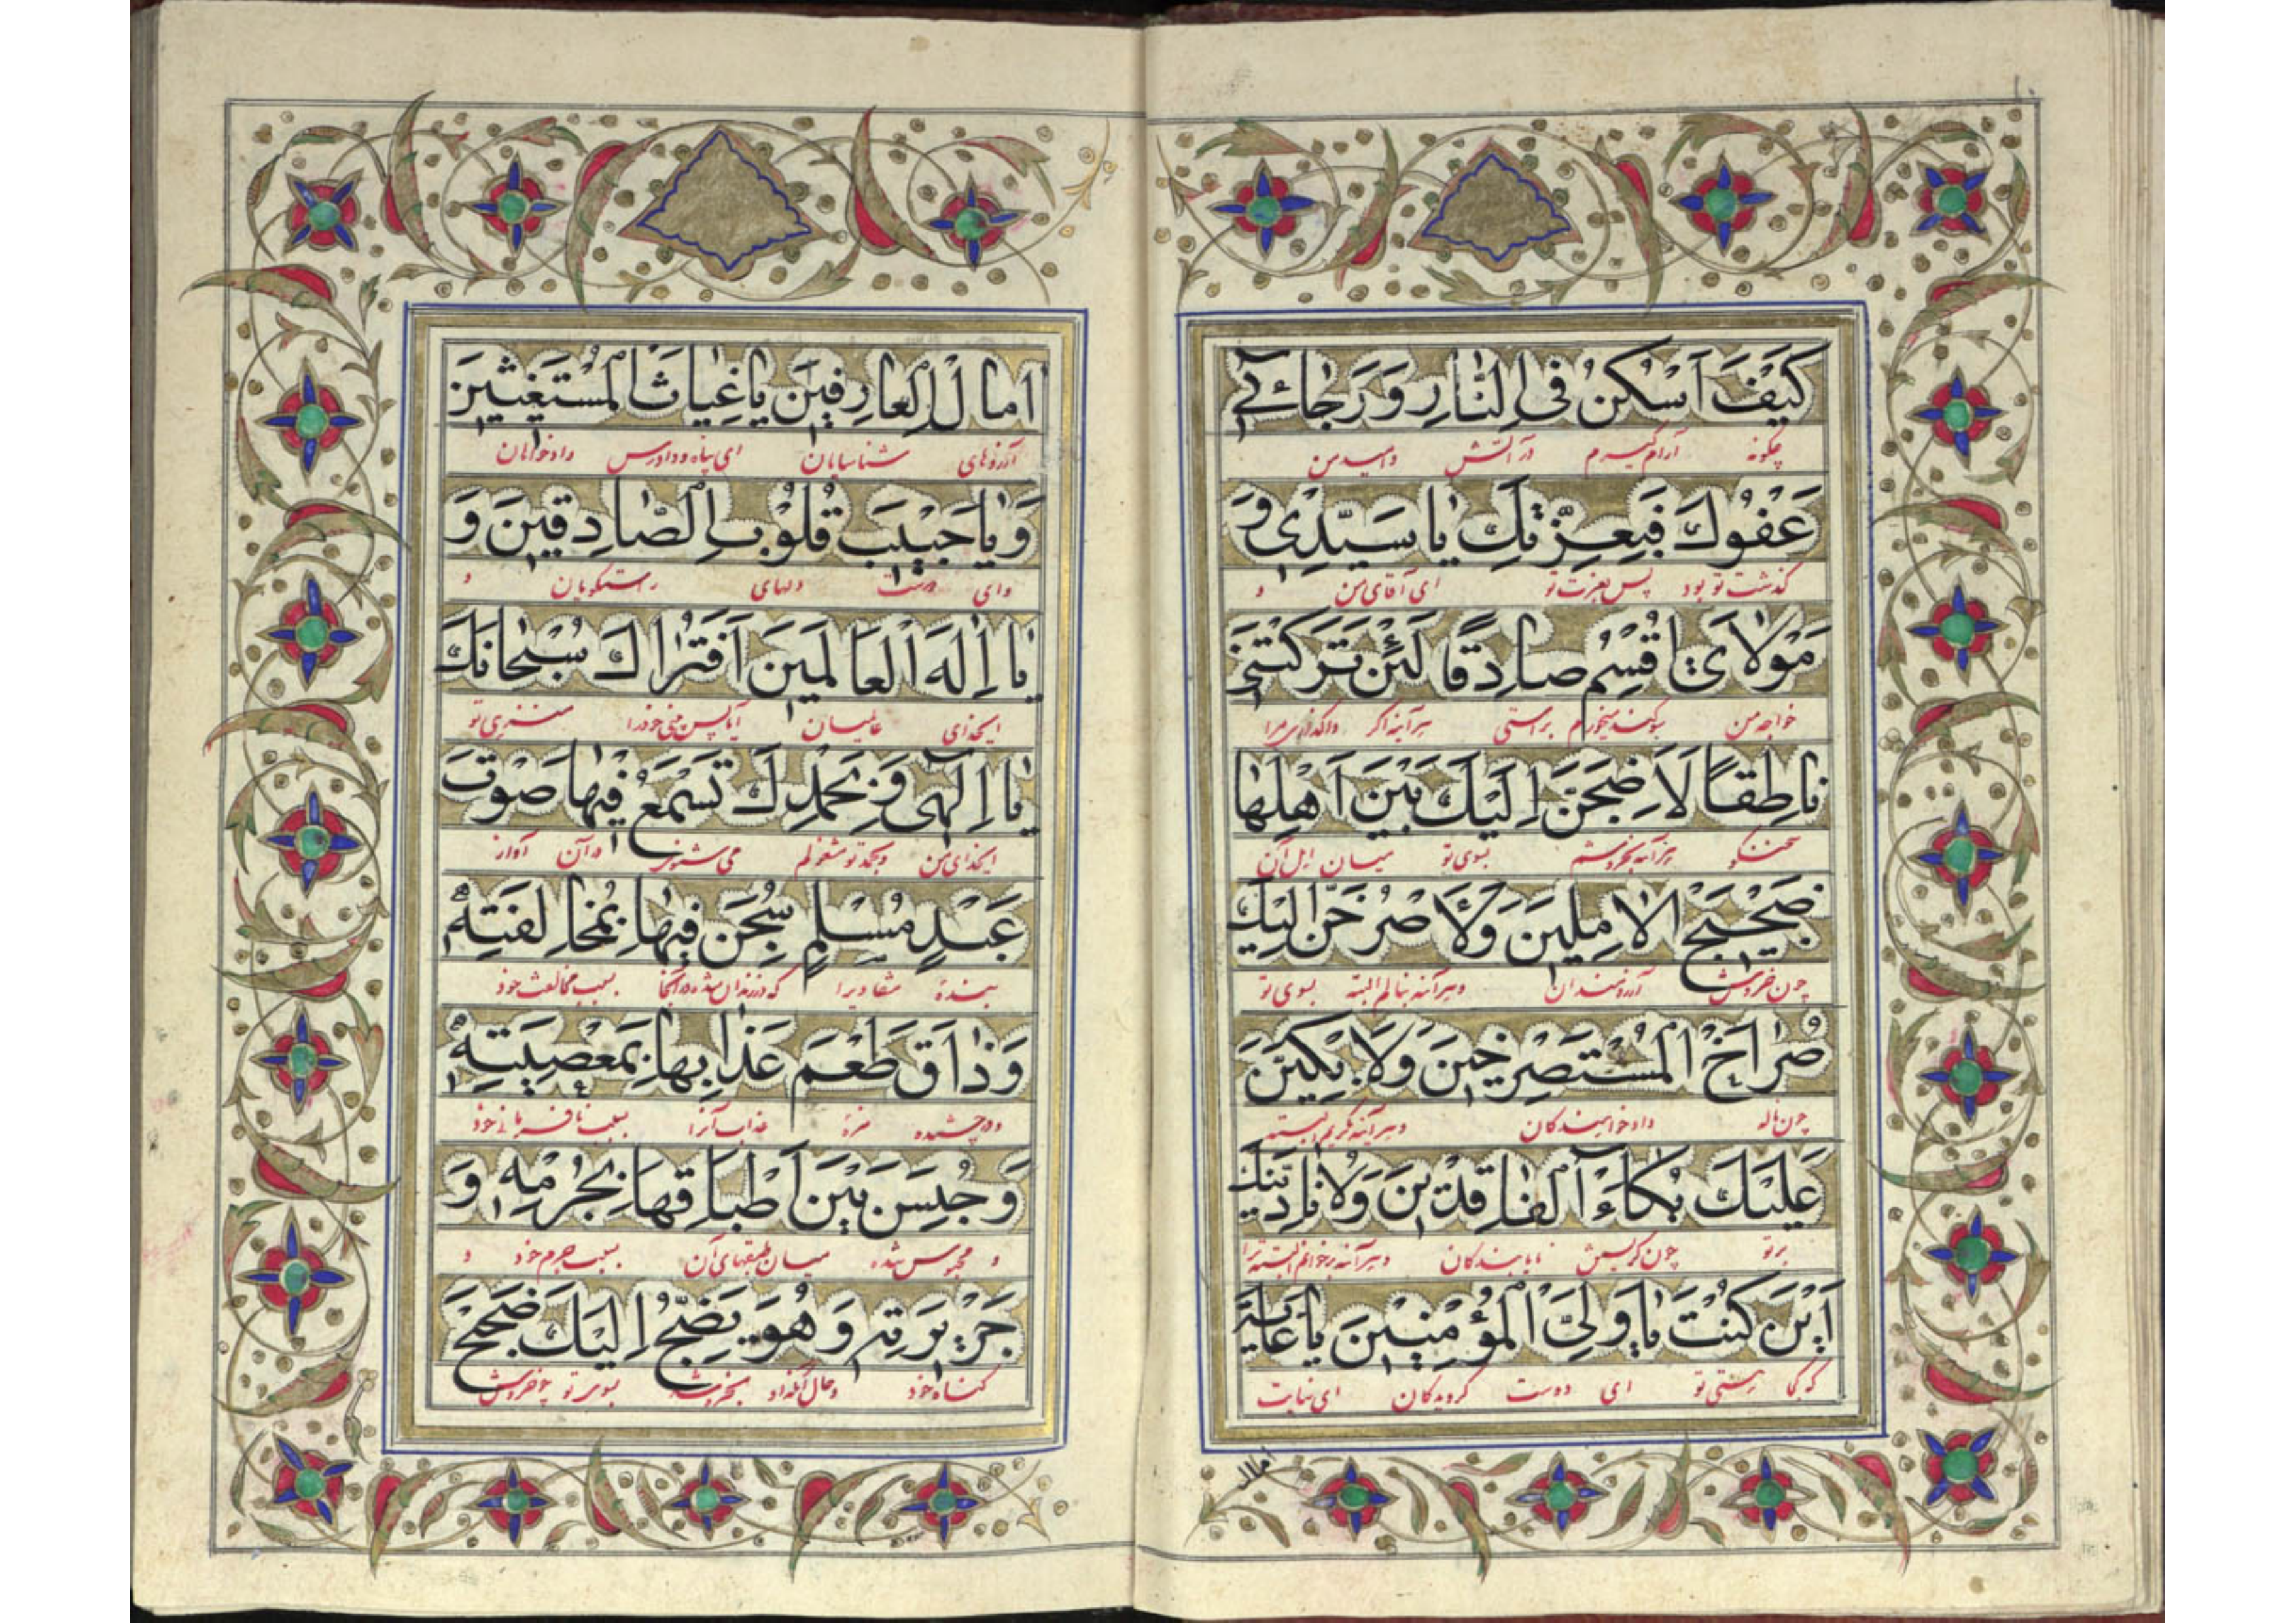 كَيْفَ اَسْكُنُ فِى النّٰارِ وَرَجٰائِي
چگونه آرام گیرم در آتش و امید من
عَفْوُكَ فَبِعِزَّتِكَ يٰا سَيِّدِى وَ
گذشت تو بود پس بعزت تو ای آقای من و
مَوْلاٰىَ اُقْسِمُ صٰادِقًا لَئِنْ تَرَكْتَنِى
خواجه من سوگند میخورم براستی هرآینه اگر واگذاری مرا
نٰاطِقًا لَاَضِجَّنَّ اِلَيْكَ بَيْنَ اَهْلِهٰا
سخنگو هرآینه بخروشم بسوی تو میان اهل آن
ضَجِيْجَ الاٰمِلِينَ وَلَاَصْرُخَنَّ اِلَيْكَ
چون خروش آرزومندان و هرآینه بنالم البته بسوی تو
صُرٰاخَ الْمُسْتَصْرِخِينَ وَلَاَبْكِيَنَّ
چون ناله دادخواهندگان و هرآینه بگریم البته
عَلَيْكَ بُكٰاءَ الْفٰاقِدِينَ وَلَاُنٰادِيَنَّكَ
بر تو چون گریستن نایابندگان و هرآینه بخوانم البته ترا
اَيْنَ كُنْتَ يٰا وَلِىَّ الْمُؤْمِنِينَ يٰا غٰايَةَ
که کجا هستی تو ای دوست گرویدگان ای نهایت
امال
اٰمٰالِ الْعٰارِفِينَ يٰا غِيٰاثَ الْمُسْتَغِيثِينَ
آرزوهای شناسایان ای پناه و دادرس دادخواهان
وَيٰا حَبِيْبَ قُلُوْبِ الصّٰادِقِينَ وَ
و ای دوست دلهای راستگویان و
يٰا اِلٰهَ الْعٰالَمِينَ اَفَتُرٰاكَ سُبْحٰانَكَ
ایخدای عالمیان آیا پس می‌بینی خود را منزهی تو
يٰا اِلٰهِى وَبِحَمْدِكَ تَسْمَعُ فِيْهٰا صَوْتَ
ایخدای من و بحمد تو مشغولم می شنوی در آن آواز
عَبْدٍ مُسْلِمٍ سُجِنَ فِيهٰا بِمُخٰالَفَتِهِ
بنده منقاد را که در زندان شده در آنجا بسبب مخالفت خود
وَذٰاقَ طَعْمَ عَذٰابِهٰا بِمَعْصِيَتِهِ
و چشیده مزه عذاب آنرا بسبب نافرمانی خود
وَحُبِسَ بَيْنَ اَطْبٰاقِهٰا بِجُرْمِهِ وَ
و محبوس شده میان طبقهای آن بسبب جرم خود و
جَرِيْرَتِهِ وَهُوَ يَضِجُّ اِلَيْكَ ضَجِيجَ
گناه خود و حال آنکه او بخروشد بسوی تو چو خروش